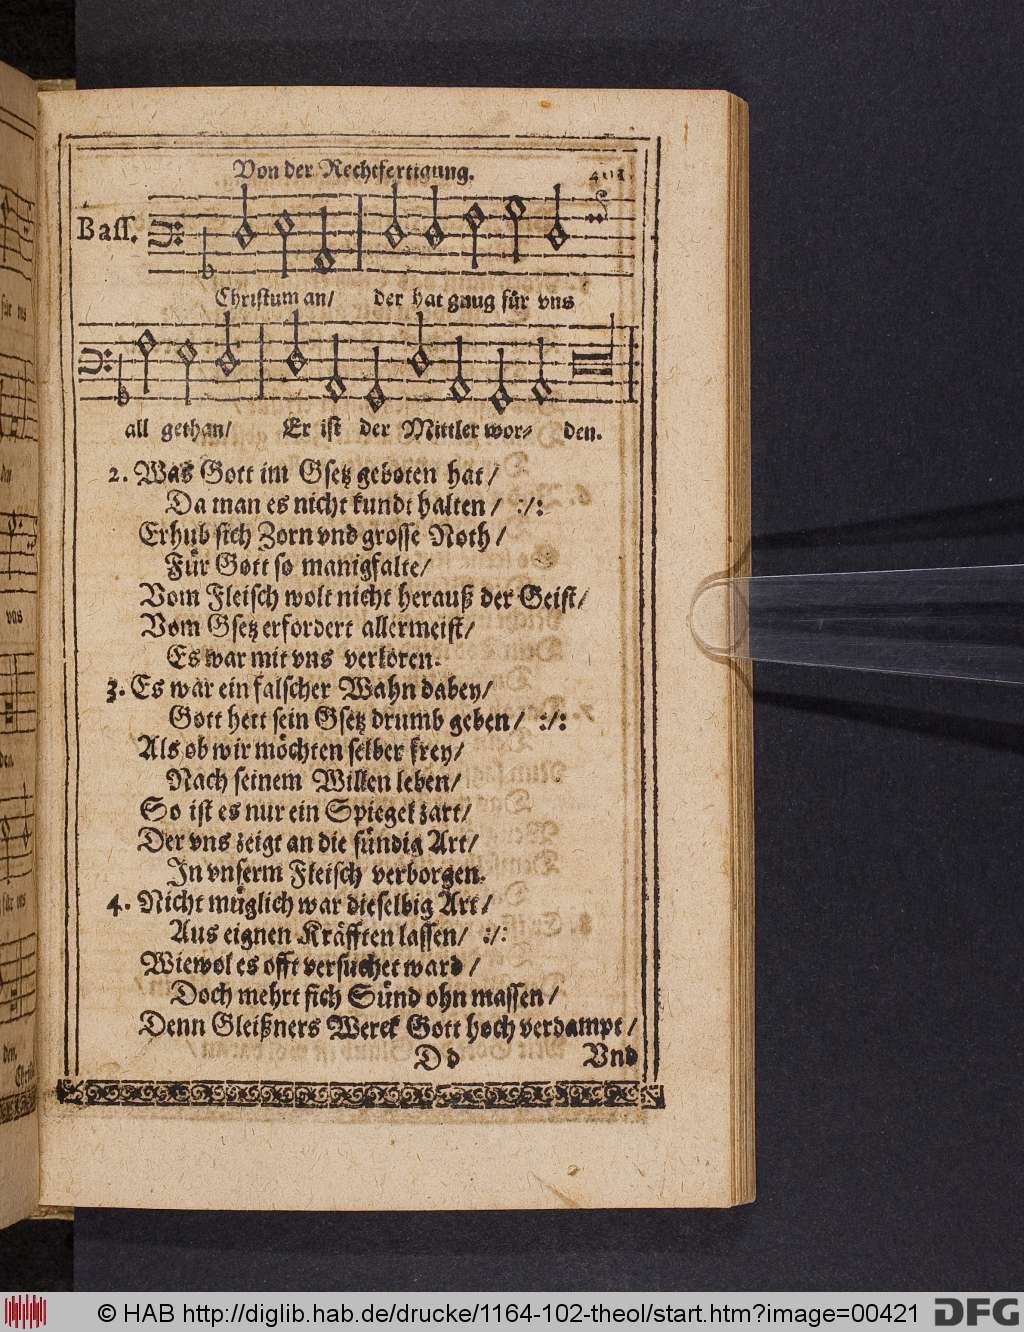 Von der Rechtfertigung.
Baſſ.
Chriſtum an/ der hat gnug fuͤr vns
all gethan/ Er iſt der Mittler wor⸗ den.
2. Was Gott im Gſetz geboten hat/
Da man es nicht kundt halten / :/:
Erhub ſich Zorn vnd groſſe Noth /
Fuͤr Gott ſo manigfalte/
Vom Fleiſch wolt nicht herauß der Geiſt/
Vom Gſetz erfordert allermeiſt/
Es war mit vns verloren.
3. Es war ein falſcher Wahn dabey/
Gott hett ſein Gſetz drumb geben / :/:
Als ob wir moͤchten ſelber frey/
Nach ſeinem Willen leben/
So iſt es nur ein Spiegel zart/
Der vns zeigt an die ſuͤndig Art/
In vnſerm Fleiſch verborgen.
4. Nicht muͤglich war dieſelbig Art/
Aus eignen Kraͤfften laſſen/ :/:
Wiewol es offt verſuchet ward /
Doch mehrt ſich Suͤnd ohn maſſen/
Denn Gleißners Werck Gott hoch verdampt /
D d Vnd
© HAB http://diglib.hab.de/drucke/1164-102-theol/start.htm?image=00421
DFG